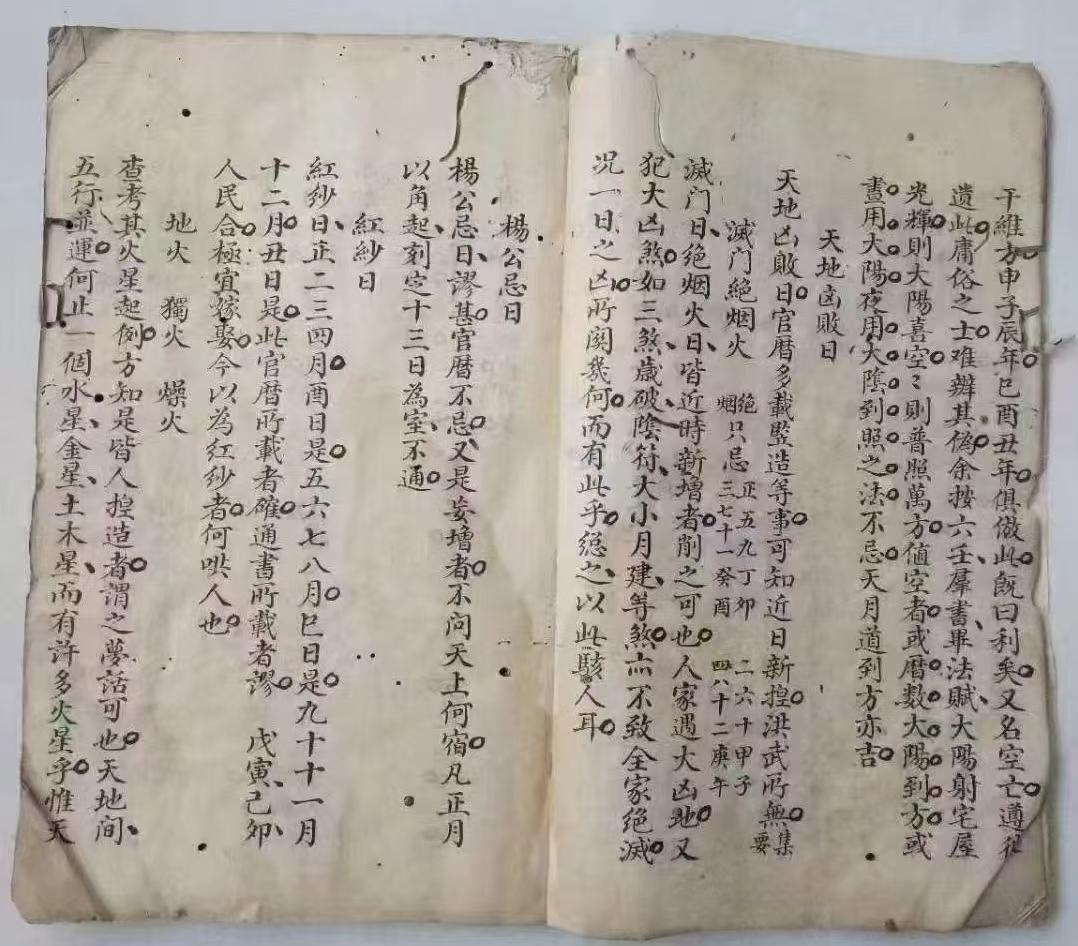 干維方申子辰年巳酉丑年俱倣此既曰利矣又名空亡遵
遺此庸俗之士难辦其偽余按六壬羣書畢法賦大陽射宅屋
光輝則大陽喜空〻則普照萬方值空者或曆数大陽到方或
晝用大陽夜用大陰到照之法不忌天月道到方亦吉
天地凶敗日
天地凶敗日官曆多載豎造等事可知近日新揑洪武所無集要
滅门絕烟火 絕烟只忌 正五九丁卯 三七十一癸酉 二六十甲子 四八十二庚午
滅门日绝烟火日皆近時新增者削之可也人家遇大凶地又
犯大凶煞如三煞歲破陰符大小月建等煞亦不致全家绝滅
况一日之凶所関幾何而有此乎總之以此駭人耳
楊公忌日
楊公忌日謬甚官曆不忌又是妄增者不问天上何宿凡正月
以角起刻定十三日為室不通
紅紗日
紅紗日正二三四月酉日是五六七八月巳日是九十十一月
十二月丑日是此官曆所載者確通書所載者謬 戊寅己卯
人民合極宜嫁娶今以為红纱者何哄人也
地火 獨火 燥火
查考其火星起例方知是皆人揑造者謂之夢話可也天地间
五行並運何止一個水星金星土木星而有許多火星乎惟天